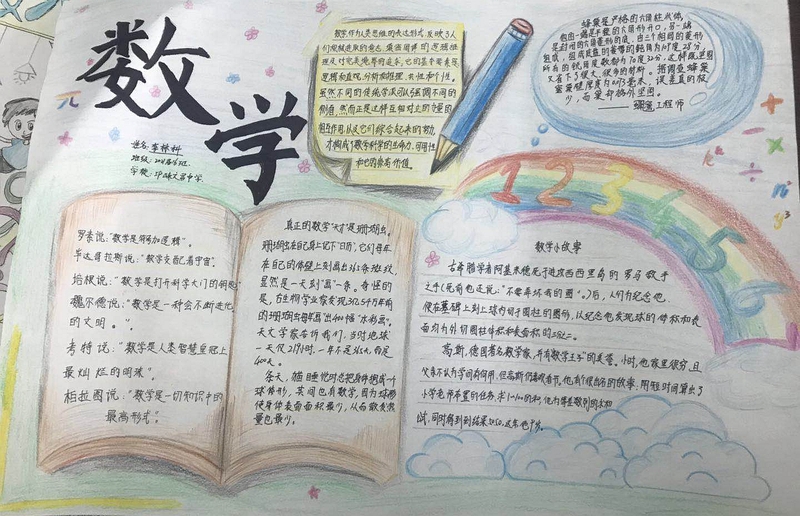 数学
姓名:李梓科
学校:
数学作为人类思维的表达形式,反映了人
们积极进取的意志,缜密周详的逻辑推
理及对完美境界的追求,它的基本要素是
逻辑和直观,分析和推理,共性和个性。
虽然不同的传统学派可以强调不同的
侧面,然而正是这种互相对立的力量的
相互作用,以及它们综合起来的努力,
才构成了数学科学的生命力,可用性
和它的崇高价值。
蜂巢是严格的六角柱状体,
它的一端是平整的六角形开口,另一端
是封闭的六角菱形的底,由三个相同的菱形
组成,组成底盘的菱形的钝角为109度28分
所有的锐角度数都为70度32分,这样既坚固
又省料
蜜巢壁厚度为0.073毫米,误差真的极
少,
工程师
罗素说:“数学是符号加逻辑”。
毕达哥拉斯说:“数学支配着宇宙”。
培根说:“数学是打开科学大门的钥匙”
魏尔德说:“数学是一种会不断进化
的文明。”。
考特说:“数学是人类智慧皇冠上
最灿烂的明珠”。
柏拉图说:“数学是一切知识中的
最高形式”。
真正的数学“天才”是珊瑚虫。
珊瑚虫在自己身上记下“日历”,它们每年
在自己的体壁上刻画出365条斑纹,
显然是一天刻“画”一条。奇怪的
是,古生物学家发现3亿5千万年前
的珊瑚虫每年“画”出400幅“水彩画”。
天文学家告诉我们,当时地球
一天仅21.9小时,一年不是365天,而是
400天。
冬天,猫睡觉时总把身体抱成一个
球体形,其间也有数学,因为球形
使身体表面面积最少,从而散发热
量也最少。
1 2 3 4 5 6
数学小故事
古希腊学者阿基米德死于进攻西西里岛的罗马敌手
之手(死前他还说:“不要弄坏我的圆”。)后,人们为纪念他
便在墓碑上刻上球内切于圆柱的图形,以纪念他发现球的体积和表
面均为外切圆柱体积和表面的
高斯,德国著名数学家,并有数学王子的美誉。小时,他家里很穷,且
父亲不认为学问有何用,但高斯仍喜欢看书,他有个很出名的故事,用短时间算出了
小学老师布置的任务:求1~100的和,